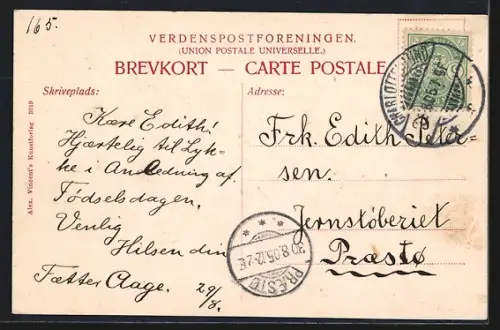 165.
VERDENSPOSTFORENINGEN.
(UNION POSTALE UNIVERSELLE.)
BREVKORT — CARTE POSTALE
Skriveplads:
Adresse:
Alex. Vincent's Kunstforlag 2019
Kære Edith!
Hjærtelig til Lyk-
ke i Anledning af
Fødselsdagen.
Venlig
Hilsen din
Fætter Aage. 29/8.
Frk. Edith Peter-
sen.
Jernstøberiet
Præstø
30.8.05.12-2
PRÆSTØ
CHARLOTTENLUND